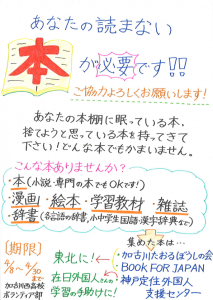 あなたの読まない
本
が必要です!!
ご協力よろしくお願いします!
あなたの本棚に眠っている本、
捨てようと思っている本を持ってきて
下さい!どんな本でもかまいません。
こんな本ありませんか?
・本(小説・専門の本でもOKです!)
・漫画・絵本・学習教材・雑誌
・辞書(各言語の辞書、小中学生国語・漢字辞典など)
〔期限〕
4/8~4/30まで
加古川西高校
ボランティア部
東北に!
在日外国人さんの
学習の手助けに!
集めた本は…
・加古川たおるぼうしの会
・BOOK FOR JAPAN
・神戸定住外国人
支援センター